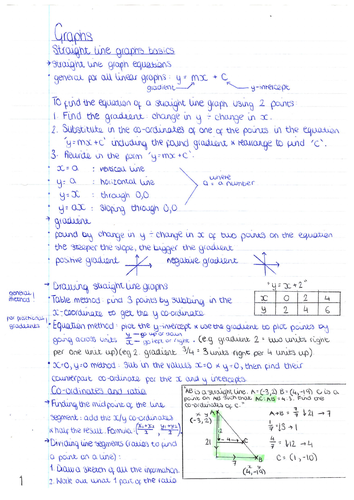 Graphs
Straight line graphs basics
→ Straight line graph equations
• general for all linear graphs: y = mx + c
gradient
y-intercept
To find the equation of a straight line graph using 2 points:
1. Find the gradient: change in y ÷ change in x.
2. Substitute in the co-ordinates of one of the points in the equation
'y=mx+c' including the found gradient & rearrange to find 'c'.
3. Rewrite in the form 'y=mx+c'.
• x=a : vertical line
• y=a : horizontal line
where
a = a number
• y=x : through 0,0
• y=ax : sloping through 0,0
→ gradient
• found by change in y ÷ change in x of two points on the equation
• the steeper the slope, the bigger the gradient
• positive gradient
negative gradient
→ Drawing straight line graphs
"y = x+2"
general method
• Table method: find 3 points by subbing in the
x-coordinate to get the y co-ordinate
x 0 2 4
y 2 4 6
for fractional gradients
• Equation method: plot the y-intercept & use the gradient to plot points by
going across units
y → go up or down
x → go left or right
(eg gradient 2 = two units right
per one unit up)(eg 2. gradient 3/4 = 3 units right per 4 units up)
• x=0, y=0 method: sub in the values x=0 & y=0, then find their
counterpart co-ordinate for the x and y intercepts.
Co-ordinates and ratio
→ Finding the midpoint of the line
segment: add the x/y co-ordinates
& half the result. Formula (x₁+x₂/2, y₁+y₂/2)
→ Dividing line segments (ratios to find
a point on a line):
1. Draw a sketch of all the information
2. Work out what 1 part of the ratio
"AB is a straight line. A=(-3,2) B=(4,-19) C is a
point on AB such that AC:CB = 4:3. Find the
co-ordinates of C."
A
(-3,2)
21
7
C
B
(4,-19)
A+B = 7 → 7
C = (1,-10)
1